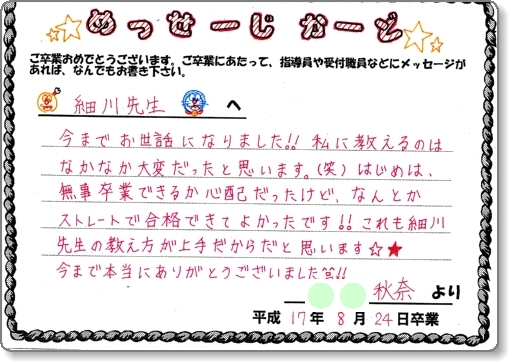 めっせーじかーど
ご卒業おめでとうございます。ご卒業にあたって、指導員や受付職員などにメッセージが
あれば、なんでもお書き下さい。
細川先生 へ
今までお世話になりました!! 私に教えるのは
なかなか大変だったと思います。(笑) はじめは、
無事卒業できるか心配だったけど、なんとか
ストレートで合格できてよかったです!! これも細川
先生の教え方が上手だからだと思います☆★
今まで本当にありがとうございました!!
秋奈 より
平成 17年 8月 24日卒業